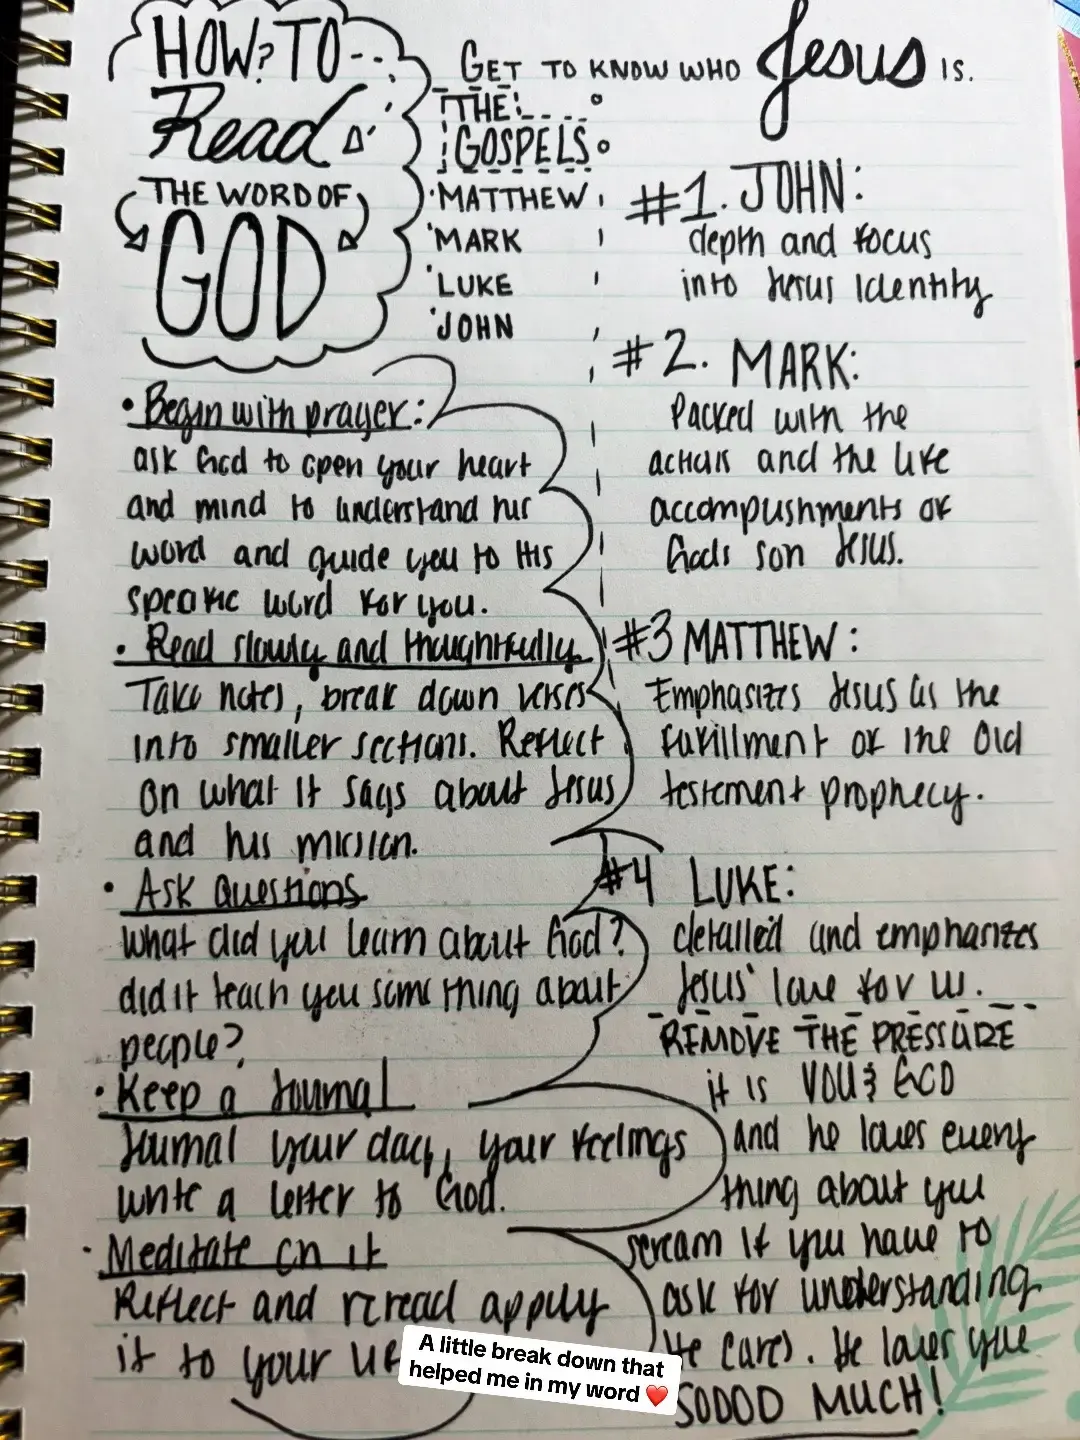 HOW? TO
Read
THE WORD OF
GOD
GET TO KNOW WHO Jesus IS.
THE
GOSPELS
MATTHEW
MARK
LUKE
JOHN
• Begin with prayer:
ask God to open your heart
and mind to understand his
word and guide you to His
specific word for you.
• Read slowly and thoughtfully
Take notes, break down verses
into smaller sections. Reflect
on what it says about Jesus
and his mission.
• Ask questions
what did you learn about God?
did it teach you something about
people?
• Keep a Journal
Journal your day, your feelings
write a letter to God.
• Meditate on it
Reflect and reread apply
it to your
#1. JOHN:
depth and focus
into Jesus Identity
#2. MARK:
Packed with the
actions and the life
accomplishments of
Gods son Jesus.
#3 MATTHEW:
Emphasizes Jesus as the
fulfillment of the Old
testement prophecy.
#4 LUKE:
detailed and emphasizes
Jesus' love for us.
REMOVE THE PRESSURE
it is YOU & GOD
and he loves every
thing about you
scream if you have to
ask for understanding
He cares. He loves you
SOOOO MUCH!
A little break down that
helped me in my word ❤️